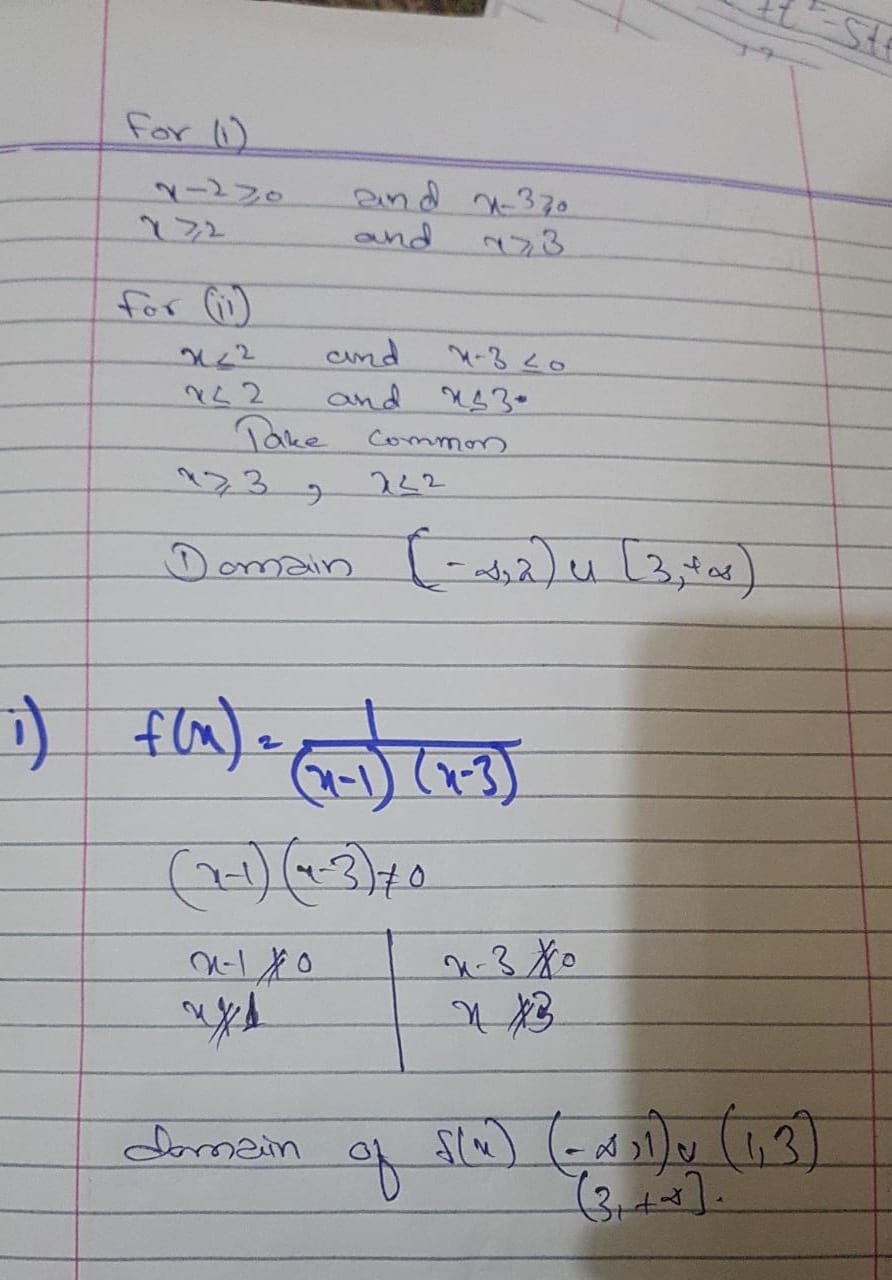 For (i)
x-2≥0 and x-3≥0
x≥2 and x≥3
for (ii)
x≤2 and x-3≤0
x≤2 and x≤3
Take common
x≥3, x≤2
Domain [-∞,2) ∪ [3,+∞)
i) f(x) = 1
(x-1) (x-3)
(x-1) (x-3) ≠ 0
x-1 ≠ 0 x-3 ≠ 0
x ≠ 1 x ≠ 3
domain of f(x) (-∞,1) ∪ (1,3)
(3,+∞].